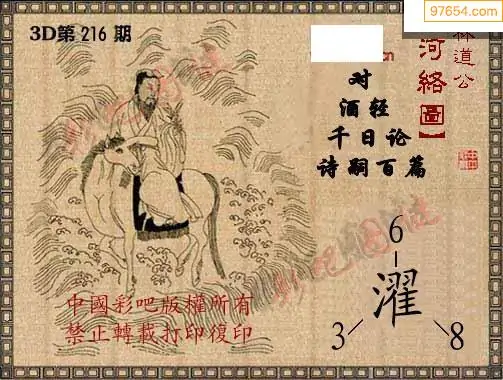 97654.com
3D第 216 期
林道公
河絡圖】
对
酒轻
千日论
诗嗣百篇
6
濯
3
8
中國彩吧版權所有
禁止轉載打印復印